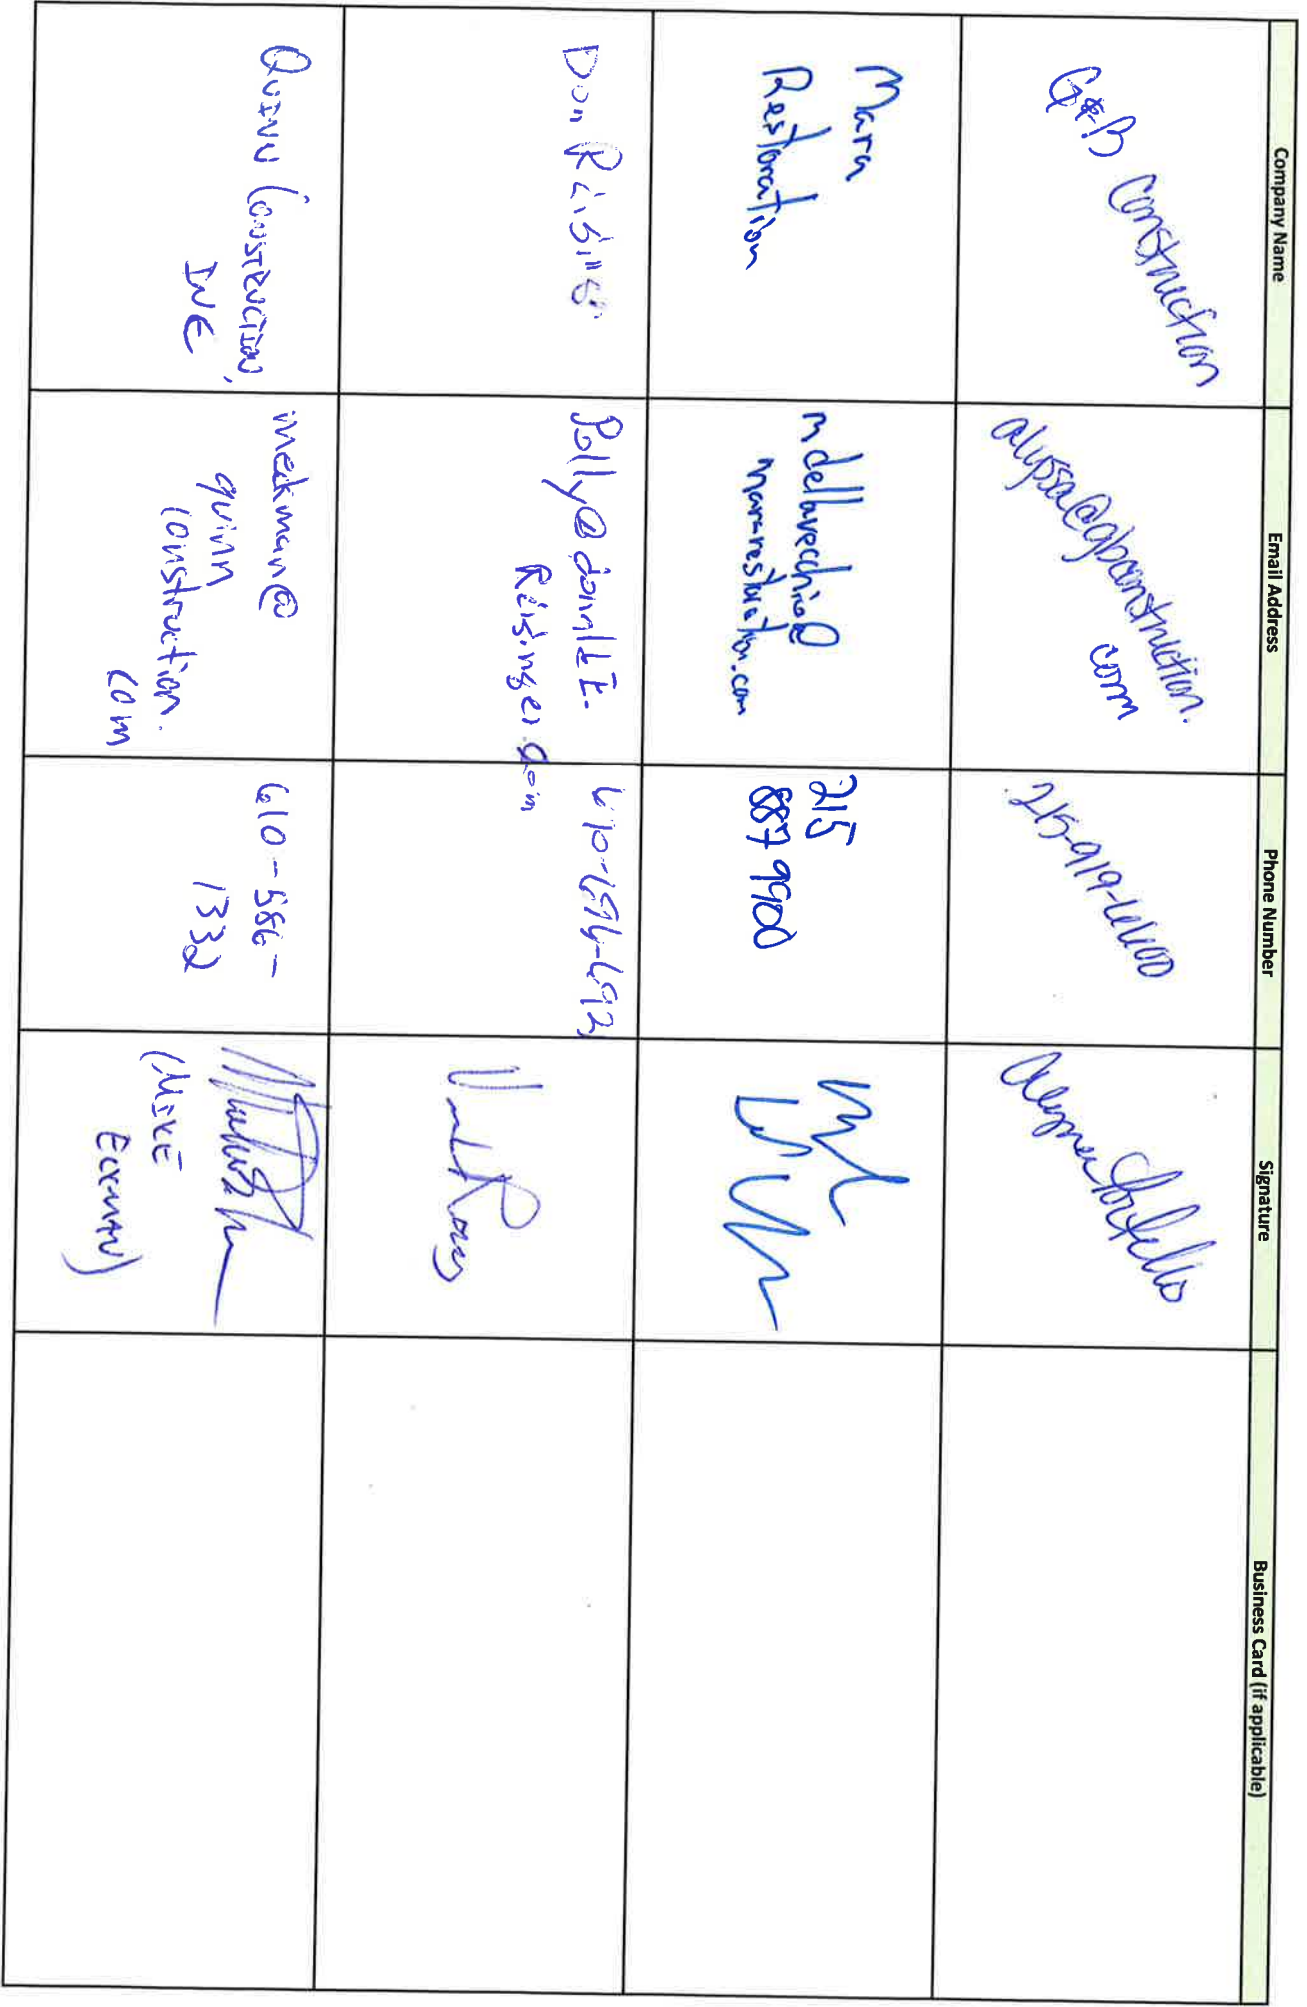 Company Name Email Address Phone Number Signature Business Card (if applicable)
G&B Construction
alyssa@gbconstruction.
com
215-919-6600
Mara
Restoration
mdellavecchia@
mararestoration.com
215
887 9900
Don Reisinger
Polly@donald E-
Reisinger.com
610-696-6921
QUINN CONSTRUCTION,
INC
meckman@
quinn
construction.
com
610-586-
1332
(MIKE
ECKMAN)